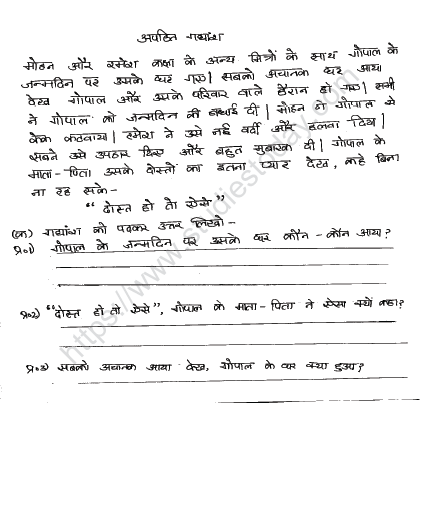 अपठित गद्यांश
मोहन और रमेश कक्षा के अन्य मित्रों के साथ गोपाल के
जन्मदिन पर उसके घर गए। सबको अचानक घर आया
देख गोपाल और उसके परिवार वाले हैरान हो गए। सभी
ने गोपाल को जन्मदिन की बधाई दी। मोहन ने गोपाल से
केक कटवाया। रमेश ने उसे नई वर्दी और दिया।
सबने उसे उपहार दिए और बहुत मुबारक दी। गोपाल के
माता-पिता उसके दोस्तों का इतना प्यार देख, कहे बिना
ना रह सके-
"दोस्त हो तो ऐसे"
(क) गद्यांश को पढ़कर उत्तर लिखो-
प्र०1) गोपाल के जन्मदिन पर उसके घर कौन-कौन आए?
प्र०2) "दोस्त हो तो ऐसे", गोपाल के माता-पिता ने ऐसा क्यों कहा?
प्र०3) सबको अचानक आया देख, गोपाल के घर क्या हुआ?
https://www.studiestoday.com